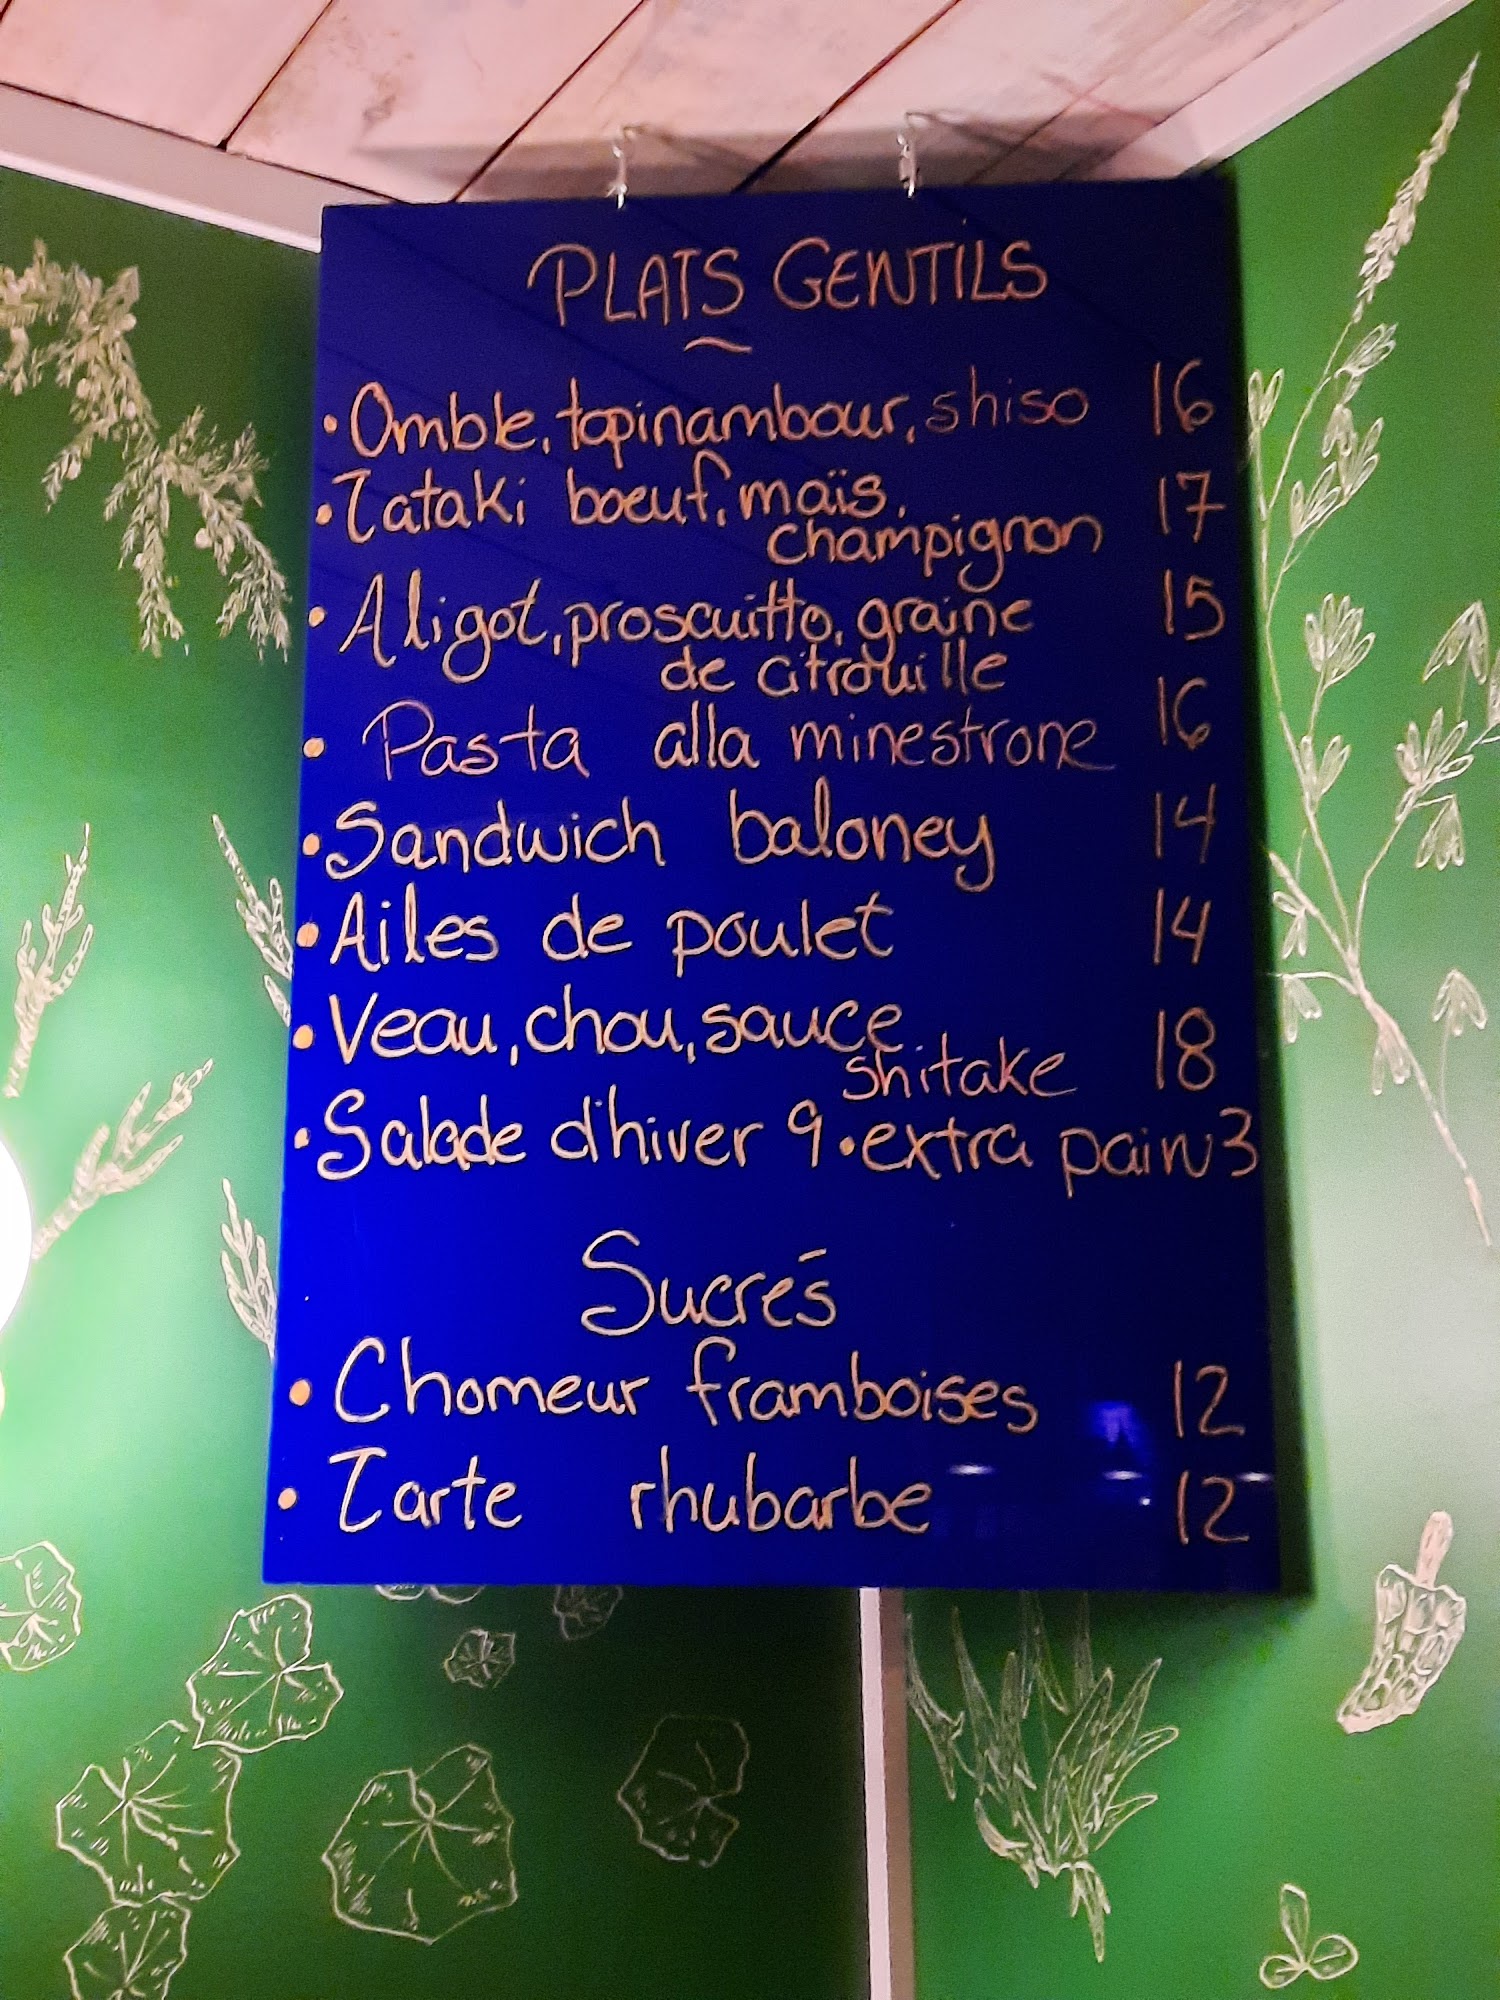 PLATS GENTILS
• Omble, topinambour, shiso 16
• Tataki boeuf, maïs, 17
champignon
• Aligot, proscuitto, graine 15
de citrouille
• Pasta alla minestrone 16
• Sandwich baloney 14
• Ailes de poulet 14
• Veau, chou, sauce 18
shitake
• Salade d'hiver 9 • extra pain 3
Sucrés
• Chomeur framboises 12
• Tarte rhubarbe 12